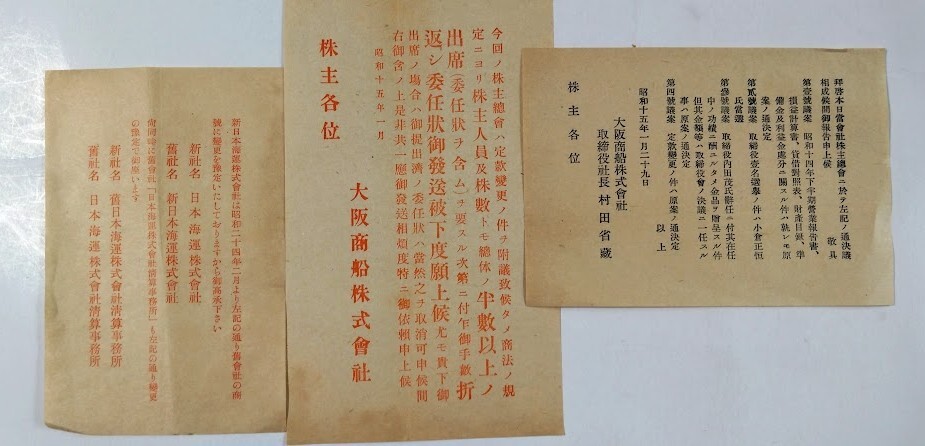 拜啓本日當會社株主總會ニ於テ左記ノ通決議
相成候間御報告申上候　敬具
第壹號議案　昭和十四年下半期營業報告書、
損益計算書、貸借對照表、財產目錄、準
備金及利益金處分ニ關スル件ハ孰レモ原
案ノ通決定
第貳號議案　取締役壹名選擧ノ件ハ小倉正恒
氏當選
第參號議案　取締役內田茂氏辭任ニ付其在任
中ノ功績ニ酬ユルタメ金品ヲ贈呈スル件
但其金額等ハ取締役會ノ決議ニ一任スル
事ハ原案ノ通決定
第四號議案　定款變更ノ件ハ原案ノ通決定
以上
昭和十五年一月二十九日
大阪商船株式會社
取締役社長　村田省藏
株主各位
今回ノ株主總會ハ定款變更ノ件ヲ附議致候タメ商法ノ規
定ニヨリ株主人員及株數トモ總体ノ半數以上ノ
出席（委任狀ヲ含ム）ヲ要スル次第ニ付乍御手數折
返シ委任狀御發送被下度願上候尤モ貴下御
出席ノ場合ハ御提出濟ノ委任狀ハ當然之ヲ取消可申候間
右御含ノ上是非共一應御發送相煩度特ニ御依賴申上候
昭和十五年一月
大阪商船株式會社
株主各位
新日本海運株式會社は昭和二十四年二月より左記の通り舊會社の商
號に變更を豫定いたしておりますから御高承下さい
新社名　日本海運株式會社
舊社名　新日本海運株式會社
尙同時に舊會社「日本海運株式會社淸算事務所」も左記の通り變更
の豫定で御座います
新社名　舊日本海運株式會社淸算事務所
舊社名　日本海運株式會社淸算事務所